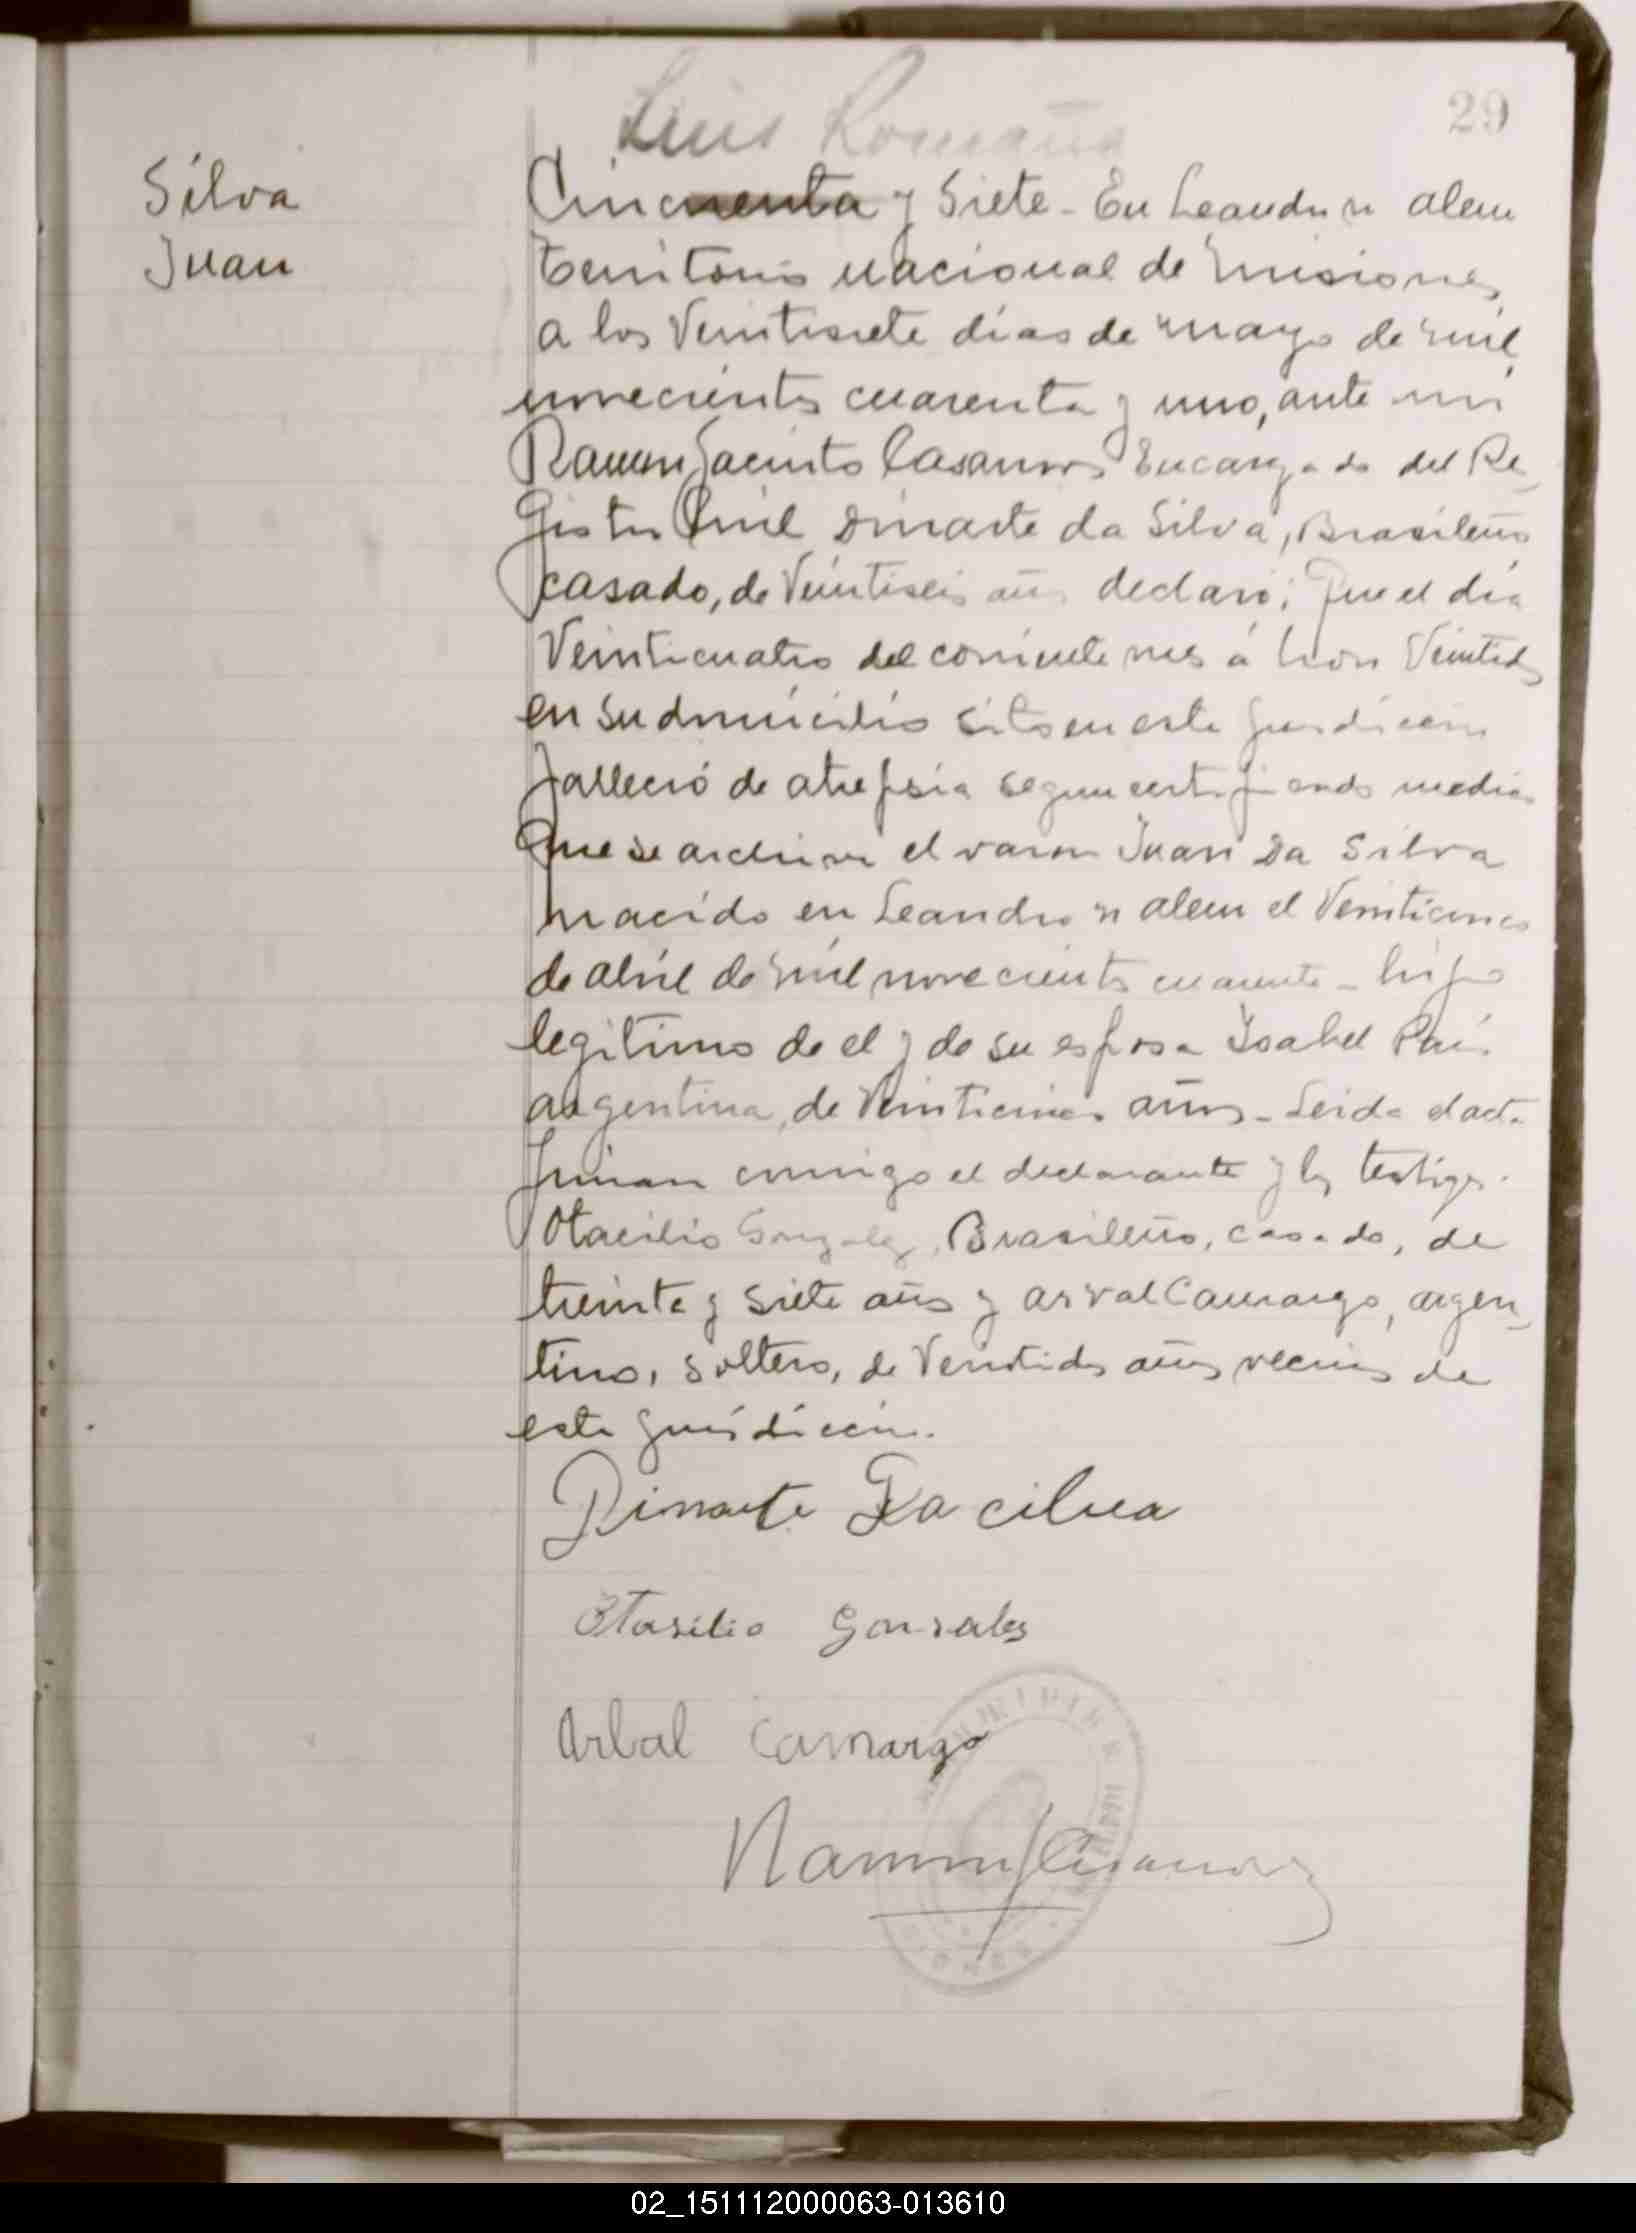 Luis Romaña
29
Silva
Juan
Cincuenta y Siete - En Leandro n alem
territorio nacional de misiones
a los Veintisiete días de mayo de mil
novecientos cuarenta y uno, ante mi
Ramon Jacinto Casanova Encargado del Re_
gistro Civil Dinarte da Silva, Brasileño
casado, de Veintiseis años declaró; Que el día
Veinticuatro del corriente mes á hora Veintidos
en su domicilio sito en esta jurdiccion
falleció de atrepsia segun certificado medico
que se archiva el varon Juan Da Silva
nacido en Leandro n alem el Veinticinco
de abril de mil novecientos cuarenta - hijo
legítimo de el y de su esposa Isabel
argentina, de Veinticinco años - Leida el acta
firman conmigo el declarante y los testigos
Otacilio Gonzalez, Brasileño, casado, de
treinta y siete años y arval Camargo, argen_
tino, soltero, de Veintidos años vecinos de
esta jurisdiccion.
Dinarte Da cilva
Otasilio Gonsales
Arbal Camargo
Ramon J Casanova
02_151112000063-013610